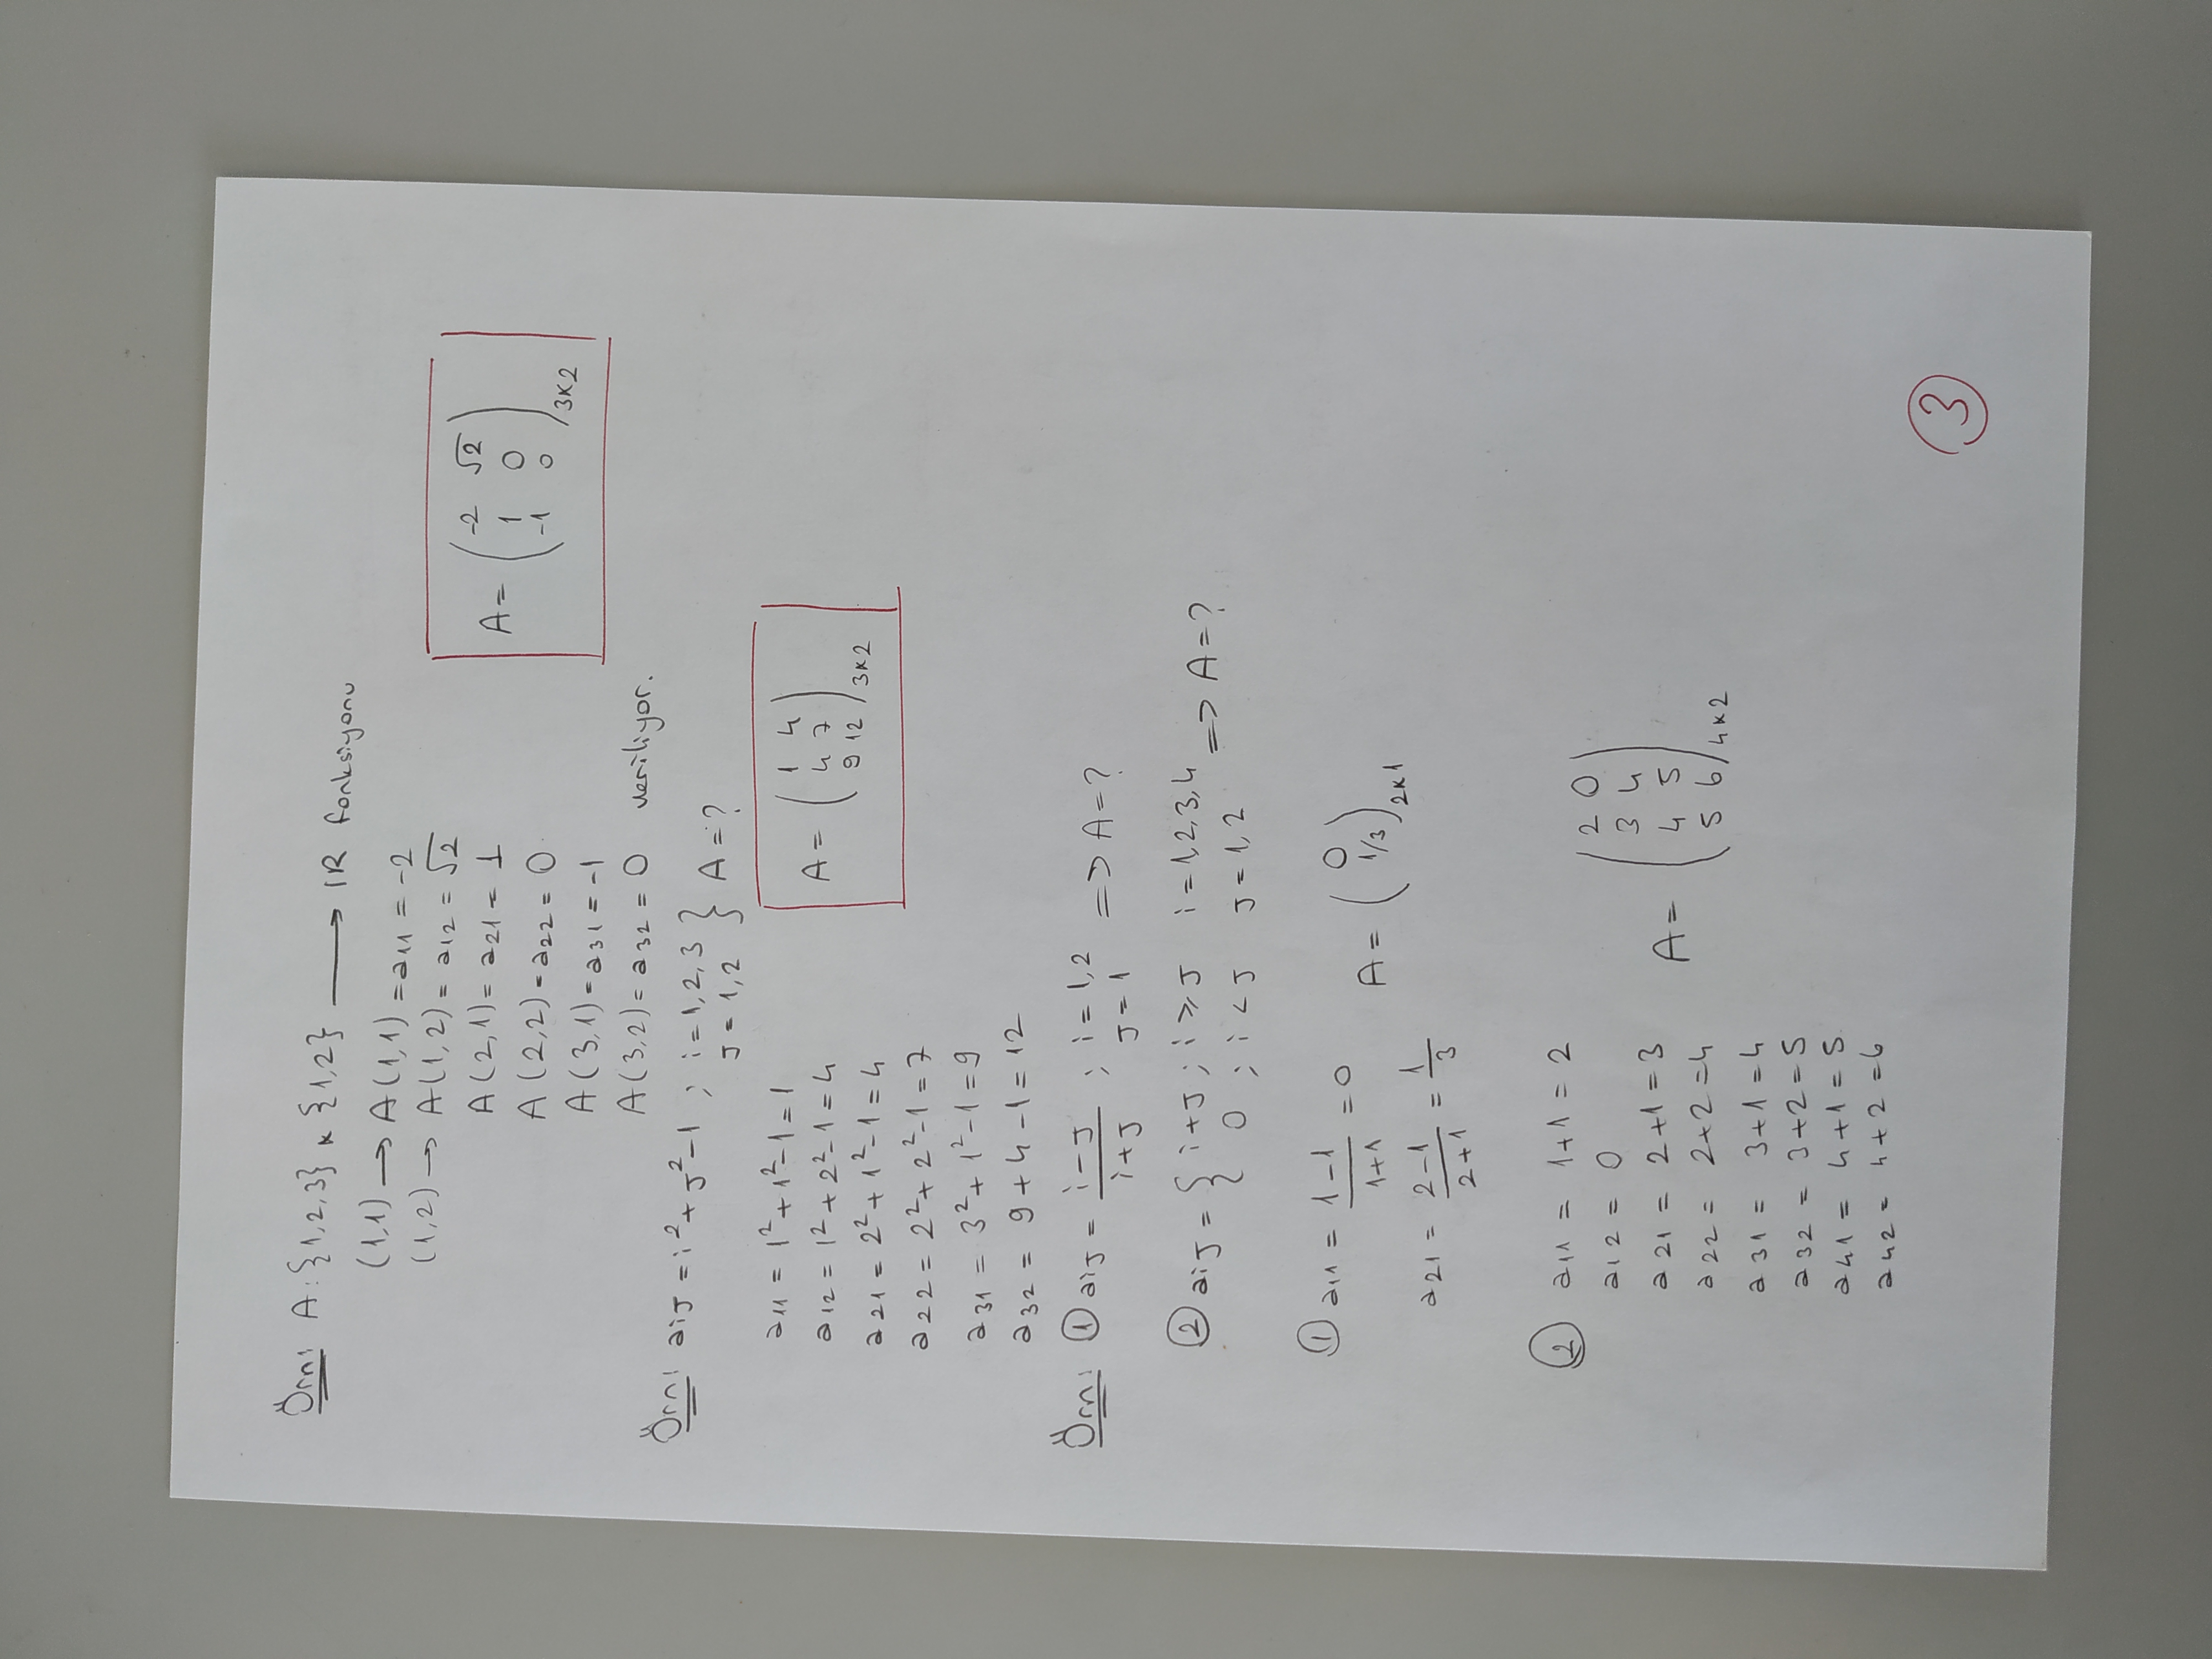 Örn: A: {1,2,3} x {1,2} ⟶ IR fonksiyonu
(1,1) → A(1,1) = a11 = -2
(1,2) → A(1,2) = a12 = √2
A(2,1) = a21 = 1
A(2,2) = a22 = 0
A(3,1) = a31 = -1
A(3,2) = a32 = 0 veriliyor.
A = ( -2 √2
1 0
-1 0 ) 3x2
Örn: aij = i² + j² - 1 ; i = 1,2,3 } A = ?
j = 1,2
a11 = 1² + 1² - 1 = 1
a12 = 1² + 2² - 1 = 4
a21 = 2² + 1² - 1 = 4
a22 = 2² + 2² - 1 = 7
a31 = 3² + 1² - 1 = 9
a32 = 9 + 4 - 1 = 12
A = ( 1 4
4 7
9 12 ) 3x2
Örn: ① aij = (i-j)/(i+j) ; i = 1,2 ⇒ A = ?
j = 1
② aij = { i+j ; i ≥ j i = 1,2,3,4 ⇒ A = ?
0 ; i < j j = 1,2
① a11 = (1-1)/(1+1) = 0
a21 = (2-1)/(2+1) = 1/3
A = ( 0
1/3 ) 2x1
② a11 = 1+1 = 2
a12 = 0
a21 = 2+1 = 3
a22 = 2+2 = 4
a31 = 3+1 = 4
a32 = 3+2 = 5
a41 = 4+1 = 5
a42 = 4+2 = 6
A = ( 2 0
3 4
4 5
5 6 ) 4x2
③